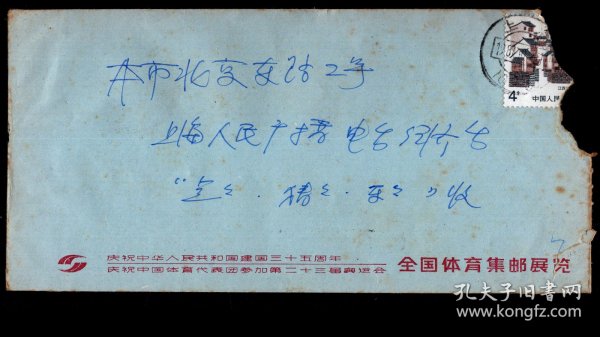 4分
中国人民
本市北京东路2号
上海人民广播电台经济台
庆祝中华人民共和国建国三十五周年
庆祝中国体育代表团参加第二十三届奥运会
全国体育集邮展览
孔夫子旧书网